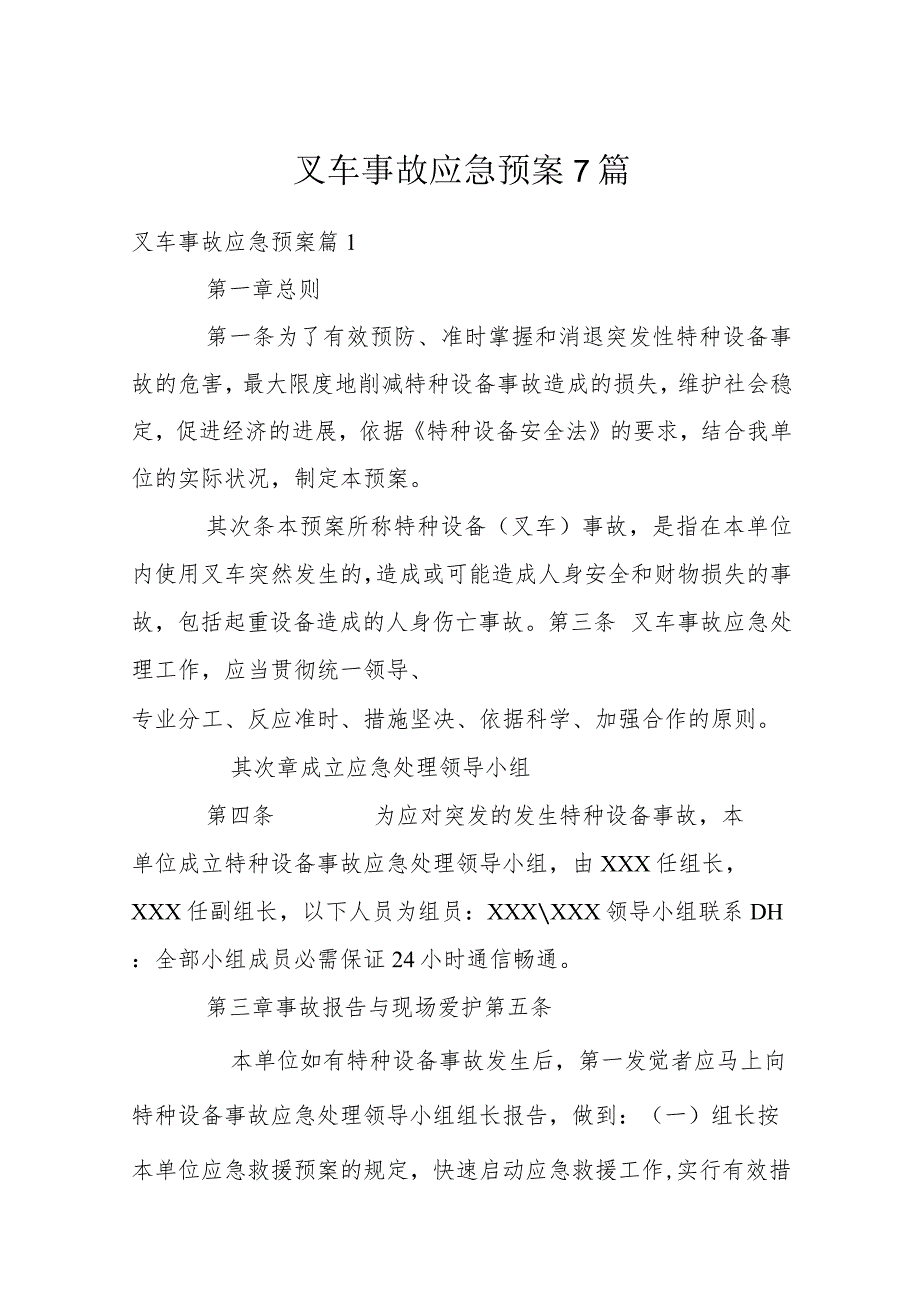 叉车事故应急预案7篇
叉车事故应急预案篇1
第一章总则
第一条为了有效预防、准时掌握和消退突发性特种设备事
故的危害，最大限度地削减特种设备事故造成的损失，维护社会稳
定，促进经济的进展，依据《特种设备安全法》的要求，结合我单
位的实际状况，制定本预案。
其次条本预案所称特种设备（叉车）事故，是指在本单位
内使用叉车突然发生的，造成或可能造成人身安全和财物损失的事
故，包括起重设备造成的人身伤亡事故。第三条 叉车事故应急处
理工作，应当贯彻统一领导、
专业分工、反应准时、措施坚决、依据科学、加强合作的原则。
其次章成立应急处理领导小组
第四条 为应对突发的发生特种设备事故，本
单位成立特种设备事故应急处理领导小组，由 XXX 任组长，
XXX 任副组长，以下人员为组员：XXX\XXX 领导小组联系 DH
：全部小组成员必需保证 24 小时通信畅通。
第三章事故报告与现场爱护第五条
本单位如有特种设备事故发生后，第一发觉者应马上向
特种设备事故应急处理领导小组组长报告，做到：（一）组长按
本单位应急救援预案的规定，快速启动应急救援工作,实行有效措